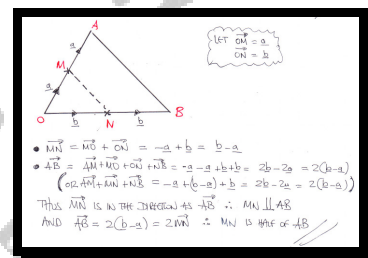 A
LET OM = a
ON = b
a
M
a
O
b
N
b
B
• MN = MO + ON = -a + b = b - a
• AB = AM + MO + ON + NB = -a - a + b + b = 2b - 2a = 2(b-a)
(OR AM + MN + NB = -a + (b-a) + b = 2b - 2a = 2(b-a))
THUS MN IS IN THE DIRECTION AS AB ∴ MN || AB
AND AB = 2(b-a) = 2MN ∴ MN IS HALF OF AB